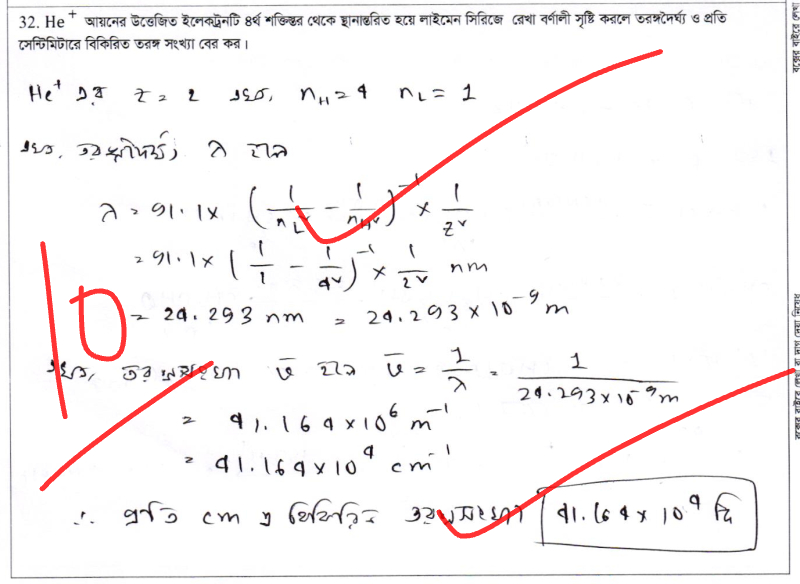 32. He⁺ আয়নের উত্তেজিত ইলেকট্রনটি ৪র্থ শক্তিস্তর থেকে স্থানান্তরিত হয়ে লাইমেন সিরিজে রেখা বর্ণালী সৃষ্টি করলে তরঙ্গদৈর্ঘ্য ও প্রতি
সেন্টিমিটারে বিকিরিত তরঙ্গ সংখ্যা বের কর।
He⁺ এর Z = 2 এবং, n_H = 4 n_L = 1
এবং, তরঙ্গদৈর্ঘ্য, λ হলে
λ = 91.1 × (1/n_L² − 1/n_H²)⁻¹ × 1/Z²
= 91.1 × (1/1 − 1/4²)⁻¹ × 1/2² nm
= 24.293 nm = 24.293 × 10⁻⁹ m
এবং, তরঙ্গসংখ্যা ῡ হলে ῡ = 1/λ = 1/(24.293 × 10⁻⁹ m)
= 41.164 × 10⁶ m⁻¹
= 41.164 × 10⁴ cm⁻¹
∴ প্রতি cm এ বিকিরিত তরঙ্গসংখ্যা 41.164 × 10⁴ টি
10